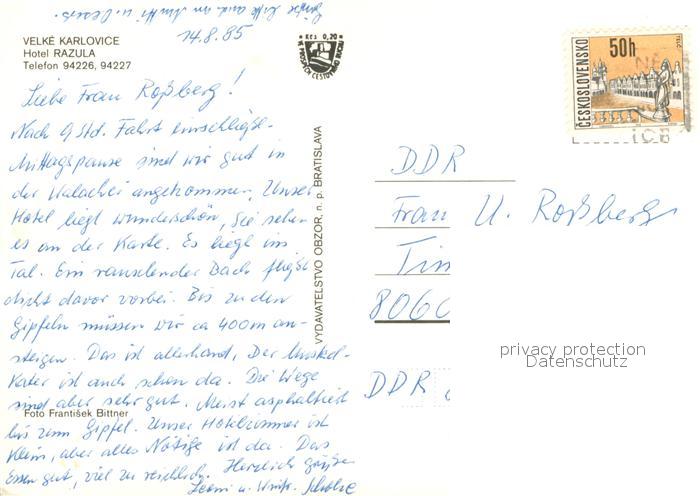 14.8.85
VELKÉ KARLOVICE
Hotel RAZULA
Telefon 94226, 94227
Kčs 0,20
50h
ČESKOSLOVENSKO
Liebe Frau Roßberg!
Nach 9 Std. Fahrt einschließl.
Mittagspause sind wir gut in
der Walachei angekommen. Unser
Hotel liegt wunderschön, Sie sehen
es an der Karte. Es liegt im
Tal. Ein rauschender Bach fließt
dicht davor vorbei. Bis zu den
Gipfeln müssen wir ca 400m an-
steigen. Das ist allerhand, Der Muskel-
kater ist auch schon da. Die Wege
sind aber sehr gut. Meist asphaltiert
Foto František Bittner
bis zum Gipfel. Unser Hotelzimmer ist
klein, aber alles Nötige ist da. Das
Essen gut, viel zu reichlich. Herzlich grüßen
VYDAVATELSTVO OBZOR, n. p. BRATISLAVA
DDR
Frau U. Roßberg
8060
DDR
privacy protection
Datenschutz